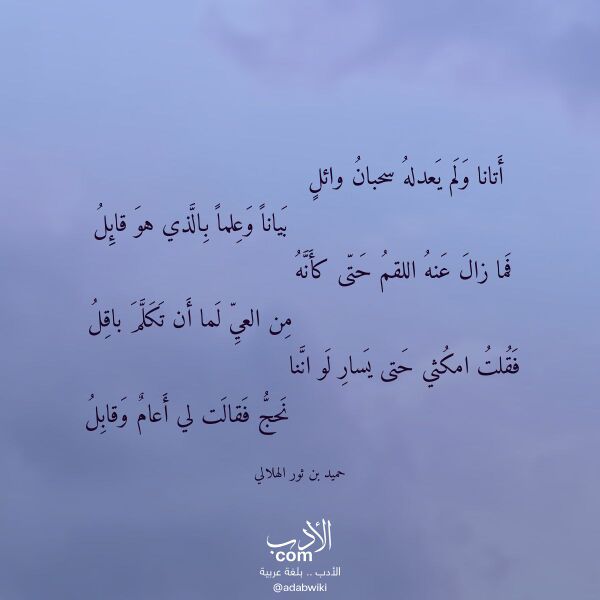 أَتانا وَلَم يَعدلهُ سحبانُ وائلٍ
بَياناً وَعِلماً بِالَّذي هوَ قايِلُ
فَما زالَ عَنهُ اللقمُ حَتّى كأَنَّهُ
مِن العيِّ لَما أَن تَكَلَّمَ باقِلُ
فَقُلتُ امكُثي حَتى يَسارِ لَو انَّنا
نَحجُّ فَقالَت لي أَعامٌ وَقابِلُ
حميد بن ثور الهلالي
الأدب
com
الأدب .. بلغة عربية
@adabwiki